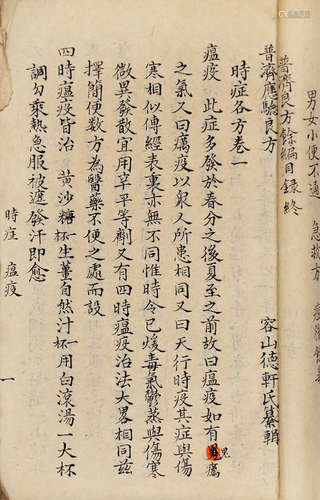 男女小便不通 急救方
普濟良方餘編目錄終
普濟應驗良方
時症各方卷一
容山德軒氏纂輯
瘟疫 此症多發於春分之後夏至之前故曰瘟疫如有鬼厲
之氣又曰癘疫以衆人所患相同又曰天行時疫其症與傷
寒相似傳經表裏亦無不同惟時令已煖毒氣鬱蒸與傷寒
微異發散宜用草平等劑又有四時瘟疫治法大畧相同茲
擇簡便数方為醫藥不便之處而設
四時瘟疫皆治 黄沙糖一杯生薑自然汁一杯用白滾湯一大杯
調勻乘熱急服被遮發汗即愈
時症 瘟疫 一